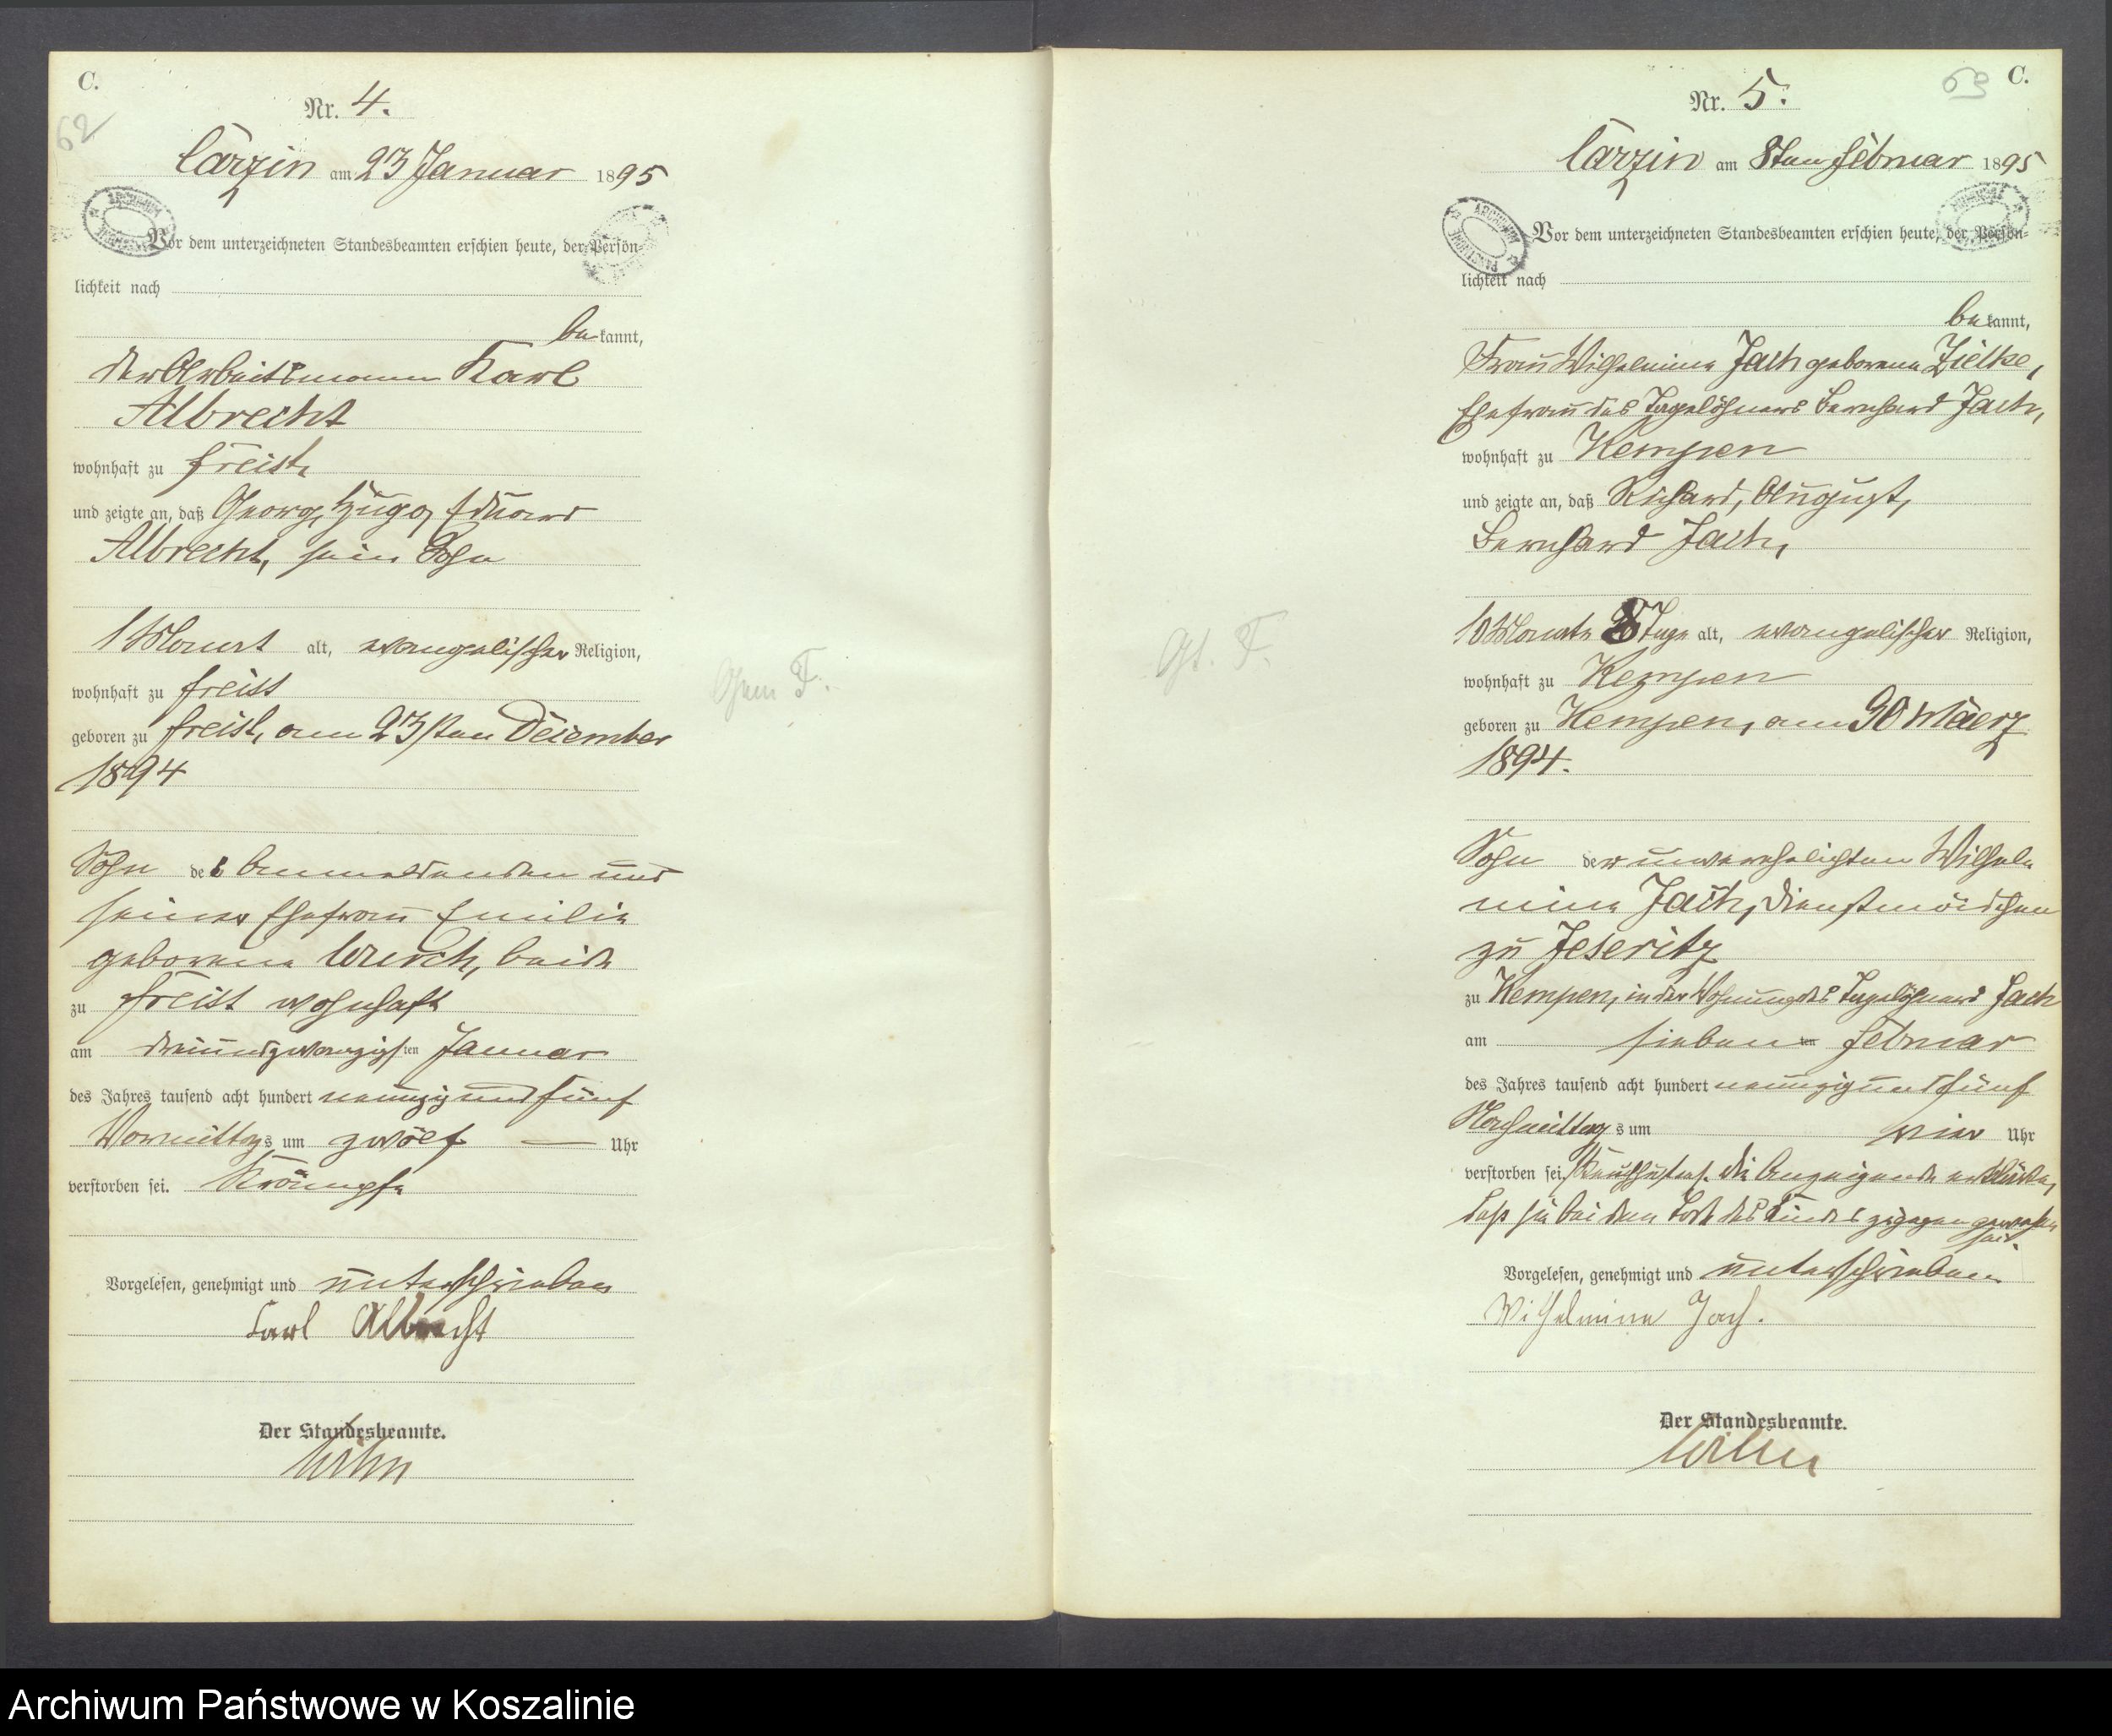 C.
62
Nr. 4.
Carzin am 23 Januar 1895
Vor dem unterzeichneten Standesbeamten erschien heute, der Persön-
lichkeit nach
bekannt,
der Arbeitsmann Karl
Albrecht
wohnhaft zu Freist,
und zeigte an, daß Georg, Hugo, Eduard
Albrecht, sein Sohn
1 Monat alt, evangelischer Religion,
wohnhaft zu Freist
geboren zu Freist, am 23sten Dezember
1894
Sohn des Anmeldenden und
seiner Ehefrau Emilie
geborene, beide
zu Freist wohnhaft
am dreiundzwanzigsten Januar
des Jahres tausend acht hundert neunzig und fünf
Vormittags um zwölf Uhr
verstorben sei. Krämpfe
Vorgelesen, genehmigt und unterschrieben
Carl Albrecht
Der Standesbeamte.
F.
63
C.
Nr. 5.
Carzin am 8ten Februar 1895
ARCHIWUM
Vor dem unterzeichneten Standesbeamten erschien heute, der Persön-
lichkeit nach
bekannt,
Frau Wilhelmine Jach geborene Zielke,
Ehefrau des Tagelöhners Bernhard Jach,
wohnhaft zu Kempen
und zeigte an, daß Richard, August,
Bernhard Jach,
10 Monate 8 Tage alt, evangelischer Religion,
wohnhaft zu Kempen
geboren zu Kempen, am 30 Maerz
1894.
Sohn der unverehelichten Wilhel-
mine Jach, Dienstmädchen
zu Jeseritz
zu Kempen, in der Wohnung des Tagelöhners Jach
am sieben ten Februar
des Jahres tausend acht hundert neunzig und fünf
Nachmittags um vier Uhr
verstorben sei. Keuchhusten. Die Anzeigende erklärte,
daß sie bei dem Tode des Kindes zugegen gewesen
sei.
Vorgelesen, genehmigt und unterschrieben
Wilhelmine Jach.
Der Standesbeamte.
Gt. F.
Archiwum Państwowe w Koszalinie